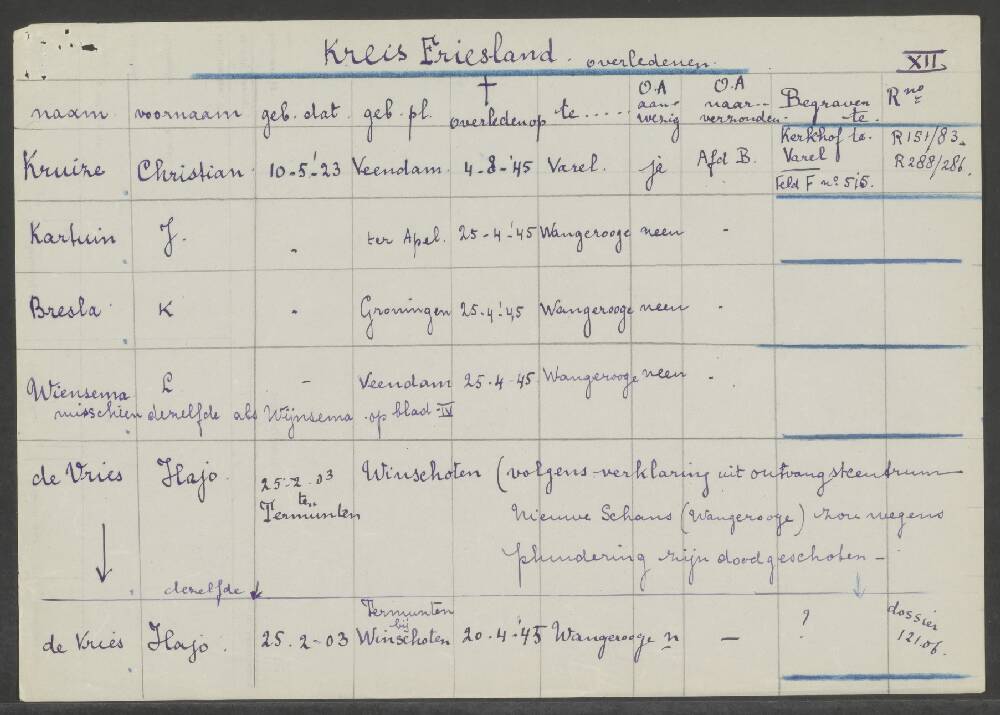 Kreis Friesland. overledenen. XII
naam. voornaam geb. dat. geb. pl. † overleden op te ..... O.A aan-wezig O.A naar-- verzonden. Begraven te. R no
Kruize Christian 10-5-'23 Veendam. 4-8-'45 Varel. ja Afd B. Kerkhof te. Varel Feld F no 515. R151/83. R288/286.
Kartuin J. - ter Apel. 25-4-'45 Wangerooge neen -
Bresla K - Groningen 25-4-'45 Wangerooge neen -
Wiensema L - Veendam 25-4-45 Wangerooge neen -
misschien dezelfde als Wijnsema op blad IV
de Vries Hajo. 25-2-03 te Termunten Winschoten (volgens verklaring uit ontvangstcentrum
Nieuwe Schans (Wangerooge) zou wegens
plundering zijn doodgeschoten -
dezelfde
de Vries Hajo. 25.2-03 Termunten bij Winschoten 20-4-'45 Wangerooge n — ? dossier 12106.